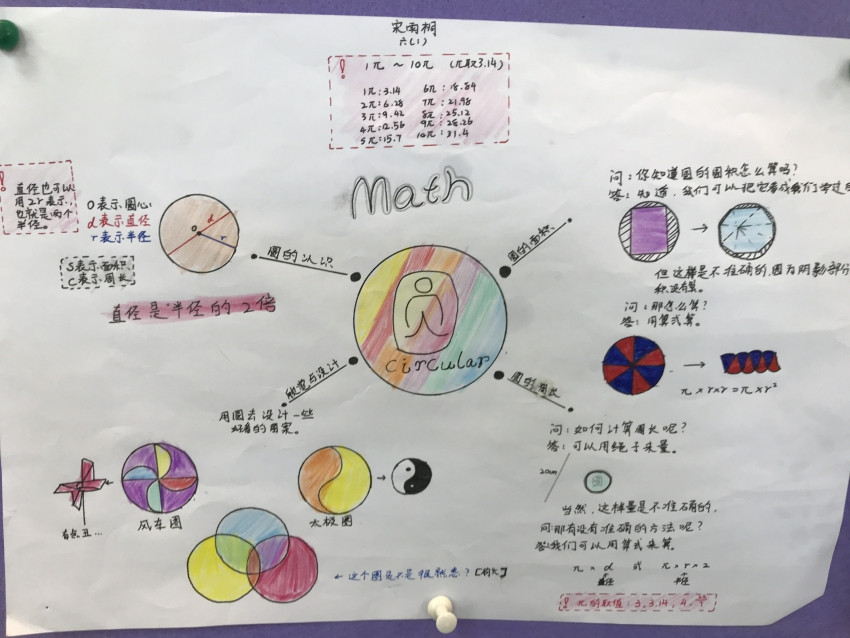 六(1)
1π ~ 10π (π取3.14)
1π:3.14 6π:18.84
2π:6.28 7π:21.98
3π:9.42 8π:25.12
4π:12.56 9π:28.26
5π:15.7 10π:31.4
Math
直径也可以
用2r表示,
也就是两个
半径。
O表示圆心
d表示直径
r表示半径
S表示面积
C表示周长
直径是半径的2倍
圆的认识
圆的面积
圆的周长
欣赏与设计
circular
问:你知道圆的面积怎么算吗?
答:知道,我们可以把它看成我们学过
但这样是不准确的,因为阴影部分
积没有算。
问:那怎么算?
答:用算式算。
π×r×r=π×r²
问:如何计算周长呢?
答:可以用绳子来量。
20cm
圆
当然,这样量是不准确的,
问:那有没有准确的方法呢?
答:我们可以用算式来算。
π×d 或 π×r×2
直径 半径
π的取值:3,3.14,
用圆去设计一些
好看的图案。
有点丑…
风车图
太极图
←这个图是不是很熟悉?